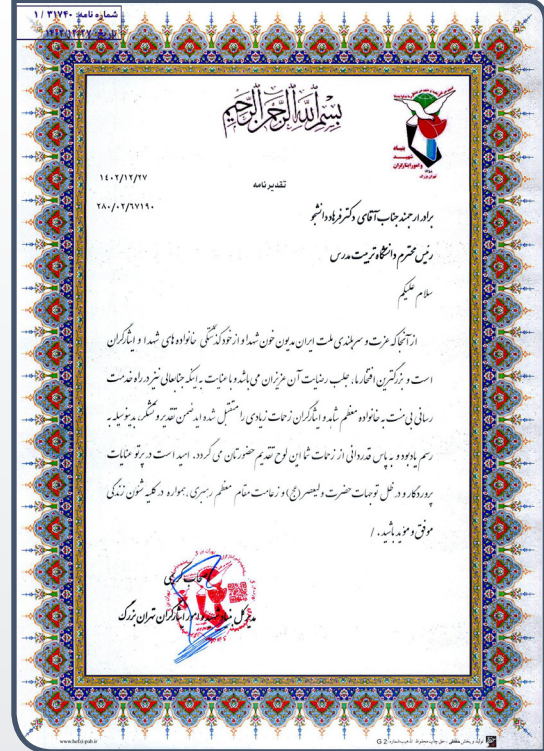 شماره نامه: ۳۱۷۴۰ / ۱
تاریخ: ۱۴۰۲/۱۲/۲۷
بسم الله الرحمن الرحیم
بنیاد
شهید
و امور ایثارگران
تهران بزرگ
۱۴۰۲/۱۲/۲۷
تقدیرنامه
۲۸۰/۰۲/۶۷۱۹۰
برادر ارجمند جناب آقای دکتر فرهاد دانشجو
رئیس محترم دانشگاه تربیت مدرس
سلام علیکم
از آنجا که عزت و سربلندی ملت ایران مدیون خون شهدا و از خود گذشتگی خانواده های شهدا و ایثارگران
است و بزرگترین افتخار ما، جلب رضایت آن عزیزان می باشد و با عنایت به اینکه جنابعالی نیز در راه خدمت
رسانی بی منت به خانواده معظم شاهد و ایثارگران زحمات زیادی را متقبل شده اید ضمن تقدیر و تشکر، بدینوسیله به
رسم یادبود و به پاس قدردانی از زحمات شما این لوح تقدیم حضورتان می گردد. امید است در پرتو عنایات
پروردگار و در ظل توجهات حضرت ولیعصر (عج) و زعامت مقام معظم رهبری، همواره در کلیه شئون زندگی
موفق و مؤید باشید. /
مدیر کل بنیاد شهید و امور ایثارگران تهران بزرگ
www.hefzi-pub.ir
تولید و پخش حفظی - حق چاپ محفوظ تذهیب شماره: G 2